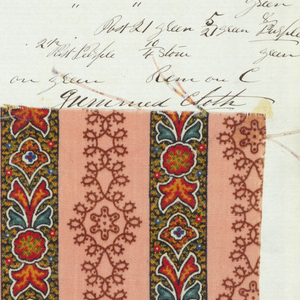 " " green
Post 21 green 5/21 green & Purple
2nd Hist Purple 10/4 Stone green
on green Rem on C
Gummed Cloth